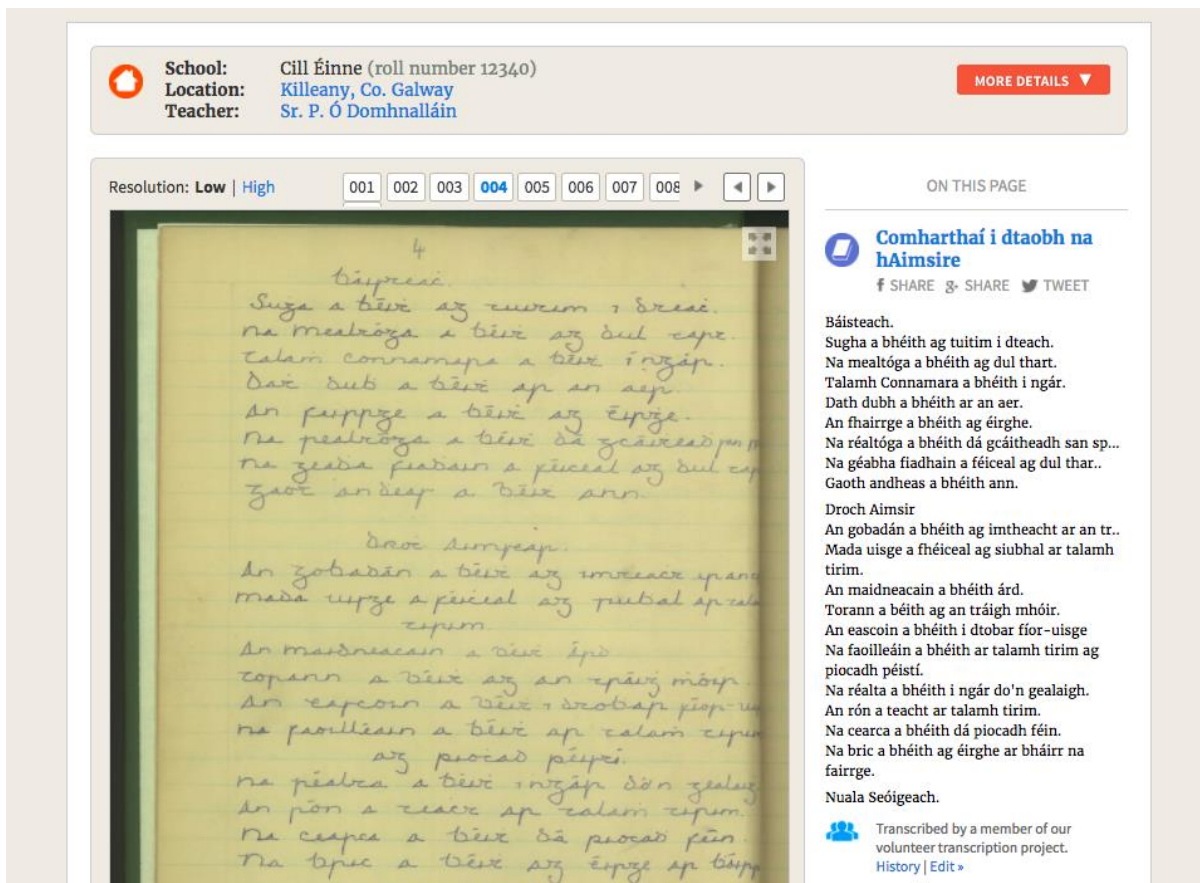 School: Cill Éinne (roll number 12340)
Location: Killeany, Co. Galway
Teacher: Sr. P. Ó Domhnalláin
MORE DETAILS ▼
Resolution: Low | High
001 002 003 004 005 006 007 008
4
báisteaċ.
Suġa a ḃéiṫ ag tuitim i dteaċ.
Na mealtóga a ḃéiṫ ag dul ṫart.
Talaṁ Connamara a ḃéiṫ i ngár.
Daṫ duḃ a ḃéiṫ ar an aér.
An ḟairrge a ḃéiṫ ag éirġe.
Na réaltóga a ḃéiṫ dá gcáiṫeaḋ san
Na géaḃa fiaḋain a féiceál ag dul
Gaoṫ andeas a ḃéiṫ ann.
Droċ Aimsear.
An gobadán a ḃéiṫ ag imṫeaċt
Mada uisge a ḟéiceál ag siuḃal ar
tirim.
An maidneacain a ḃéiṫ árd.
Torann a ḃéiṫ ag an tráiġ ṁóir.
An eascoin a ḃéiṫ i dtobar fíor-
Na faoilleáin a ḃéiṫ ar talaṁ tirim
ag piocaḋ péistí.
Na réalta a ḃéiṫ i ngár do'n
An rón a teaċt ar talaṁ tirim.
Na cearca a ḃéiṫ dá piocaḋ féin.
Na bric a ḃéiṫ ag éirġe ar ḃáirr
ON THIS PAGE
Comharthaí i dtaobh na
hAimsire
SHARE SHARE TWEET
Báisteach.
Sugha a bhéith ag tuitim i dteach.
Na mealtóga a bhéith ag dul thart.
Talamh Connamara a bhéith i ngár.
Dath dubh a bhéith ar an aer.
An fhairrge a bhéith ag éirghe.
Na réaltóga a bhéith dá gcáitheadh san sp...
Na géabha fiadhain a féiceal ag dul thar..
Gaoth andheas a bhéith ann.
Droch Aimsir
An gobadán a bhéith ag imtheacht ar an tr..
Mada uisge a fhéiceal ag siubhal ar talamh
tirim.
An maidneacain a bhéith árd.
Torann a béith ag an tráigh mhóir.
An eascoin a bhéith i dtobar fíor-uisge
Na faoilleáin a bhéith ar talamh tirim ag
piocadh péistí.
Na réalta a bhéith i ngár do'n gealaigh.
An rón a teacht ar talamh tirim.
Na cearca a bhéith dá piocadh féin.
Na bric a bhéith ag éirghe ar bháirr na
fairrge.
Nuala Seóigeach.
Transcribed by a member of our
volunteer transcription project.
History | Edit »